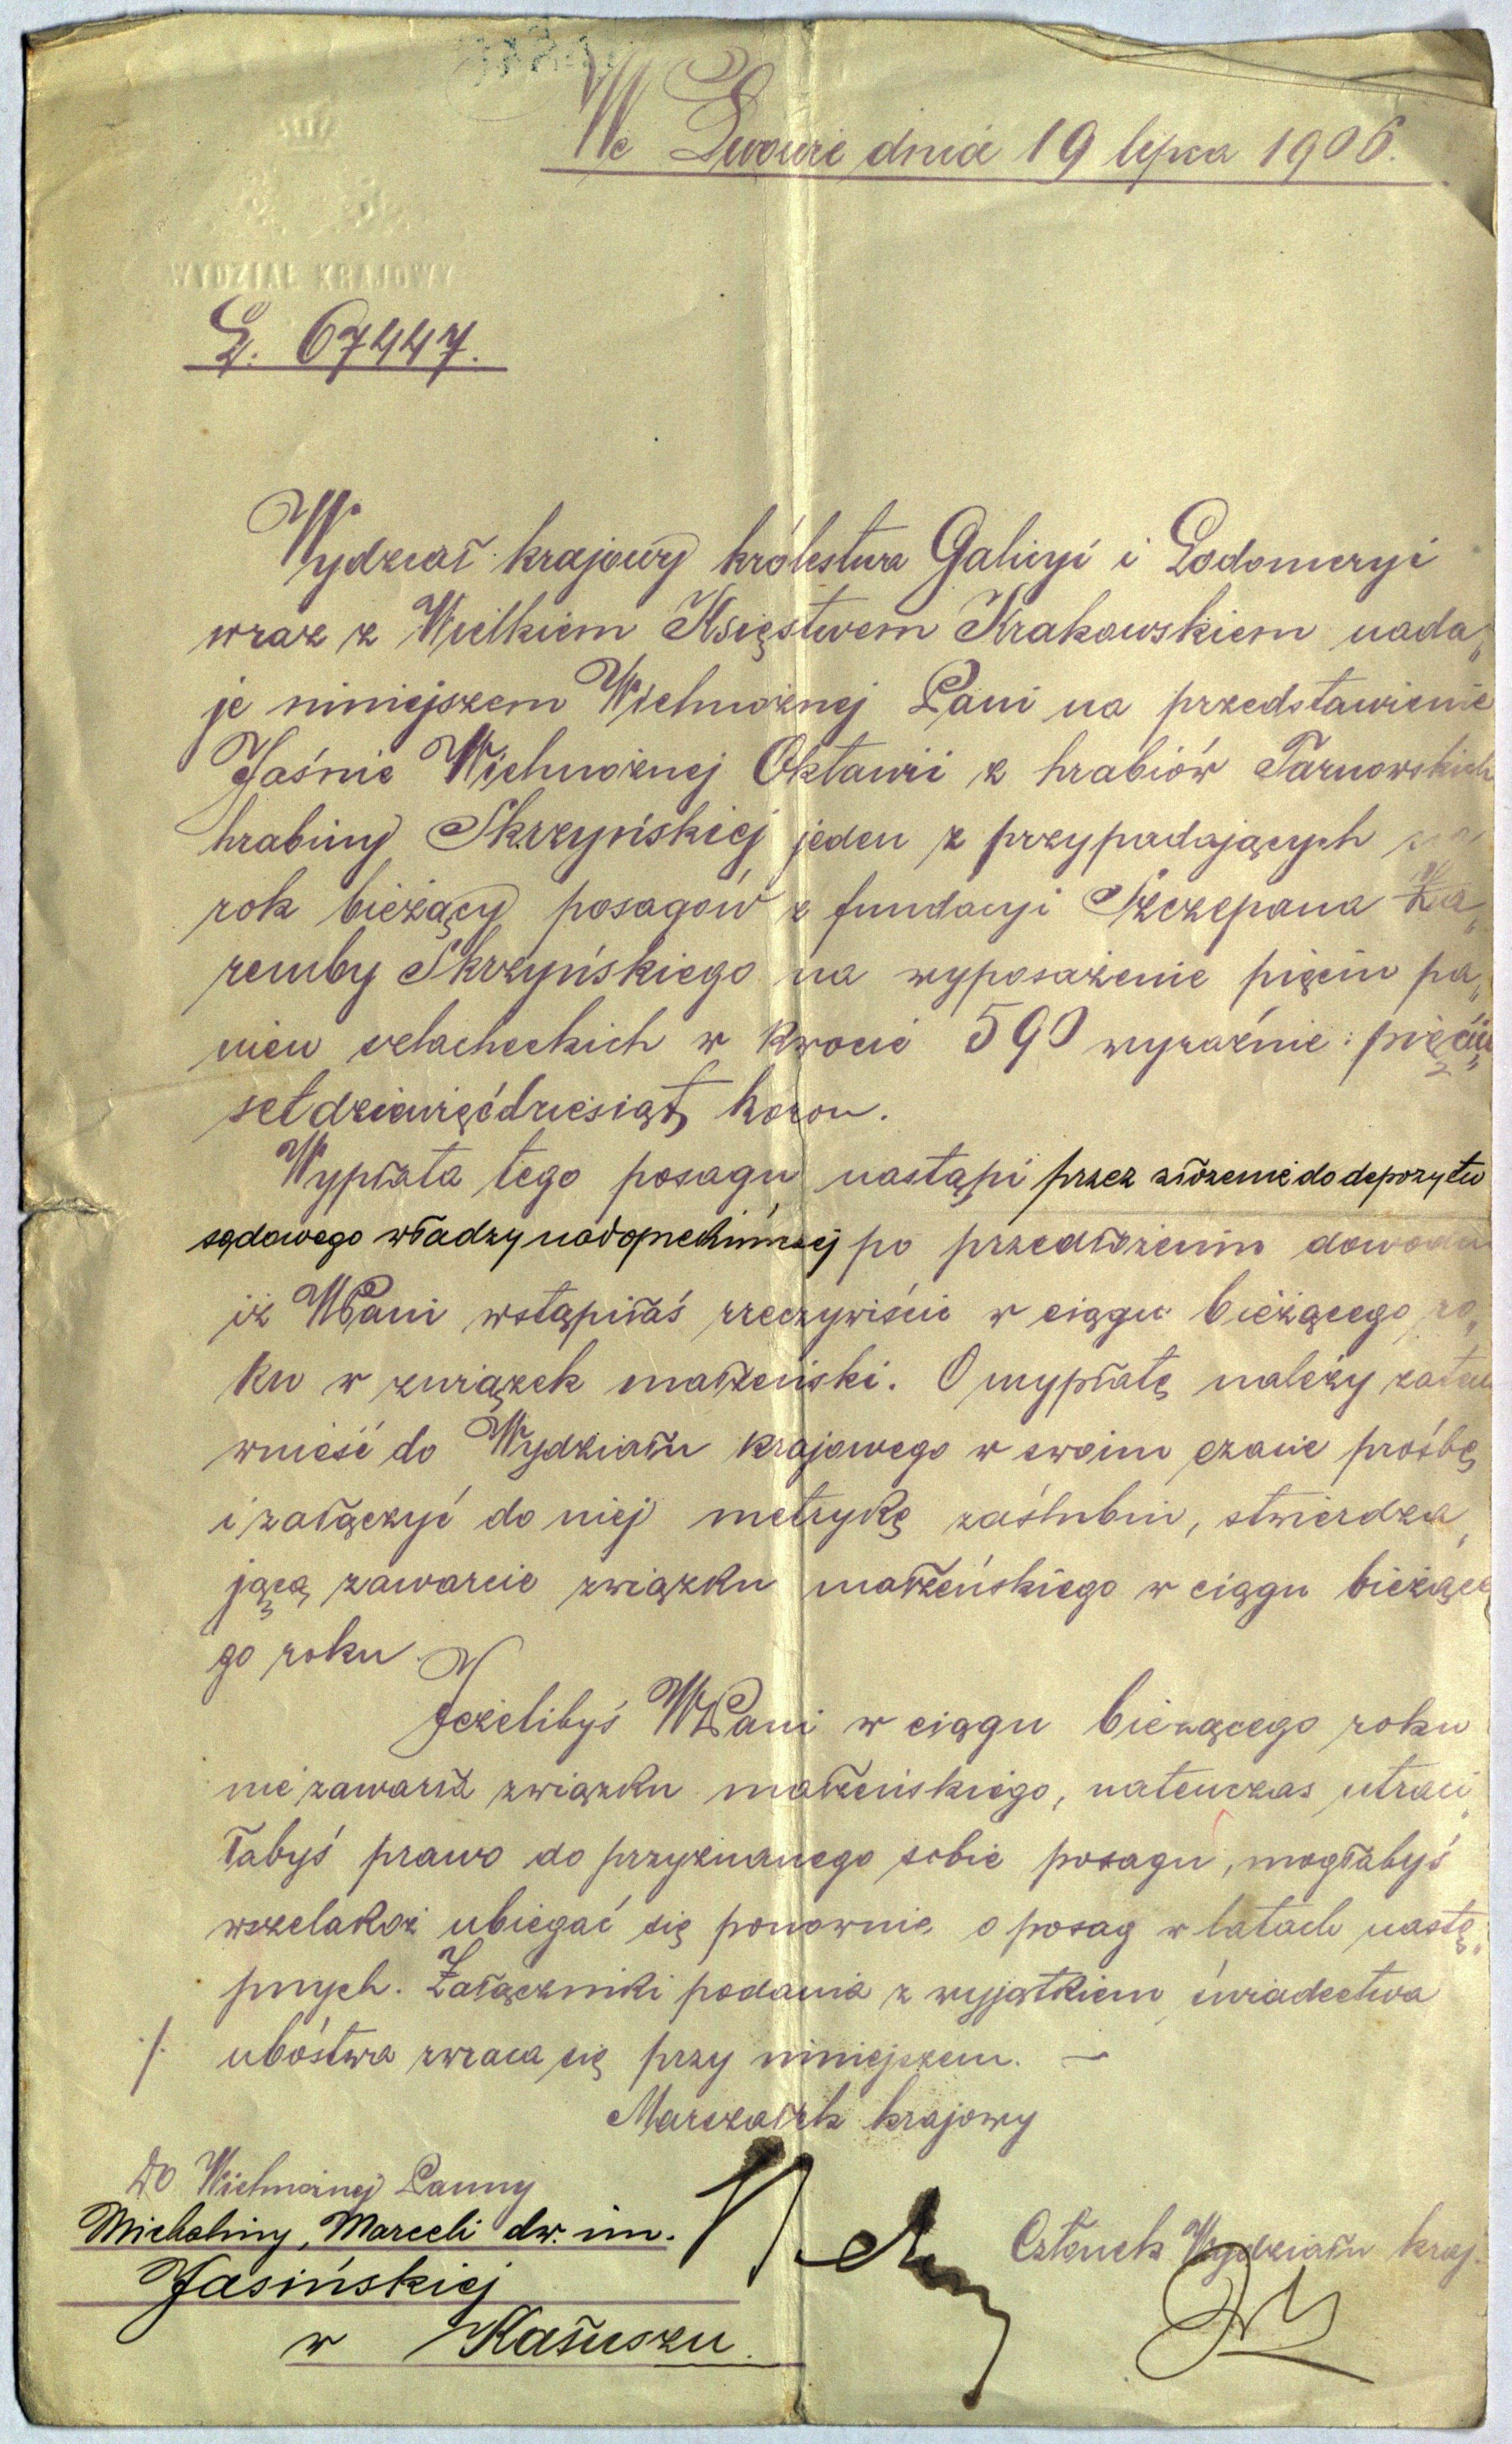 We Lwowie dnia 19 lipca 1906.
WYDZIAŁ KRAJOWY
L. 67447.
Wydział krajowy królestwa Galicyi i Lodomeryi
wraz z Wielkiem Księstwem Krakowskiem nada„
je niniejszem Wielmożnej Pani na przedstawienie
Jaśnie Wielmożnej Oktawii z hrabiów Tarnowskich
hrabiny Skrzyńskiej jeden z przypadających na
rok bieżący posagów z fundacyi Szczepana Za„
remby Skrzyńskiego na wyposażenie pięciu pa„
nien szlacheckich w kwocie 590 wyraźnie: pięć„
setdziewięćdziesiąt koron.
Wypłata tego posagu nastąpi przez złożenie do depozytu
sądowego władzy nadopiekuńczej po przedłożeniu dowodu
iż WPani wstąpiłaś rzeczywiście w ciągu bieżącego ro„
ku w związek małżeński. O wypłatę należy zatem
wnieść do Wydziału krajowego w swoim czasie prośbę
i załączyć do niej metrykę zaślubin, stwierdza„
jącą zawarcie związku małżeńskiego w ciągu bieżące
go roku.
Jeżelibyś WPani w ciągu bieżącego roku
nie zawarła związku małżeńskiego, natenczas utraci„
łabyś prawo do przyznanego sobie posagu, mogłabyś
wszelakoż ubiegać się ponownie o posag w latach nastę„
pnych. Załączniki podania z wyjątkiem świadectwa
./. ubóstwa zwraca się przy niniejszem. —
Marszałek krajowy
Do Wielmożnej Panny
Michaliny, Marceli dw. im.
Jasińskiej
w Kałuszu.
Członek Wydziału kraj.